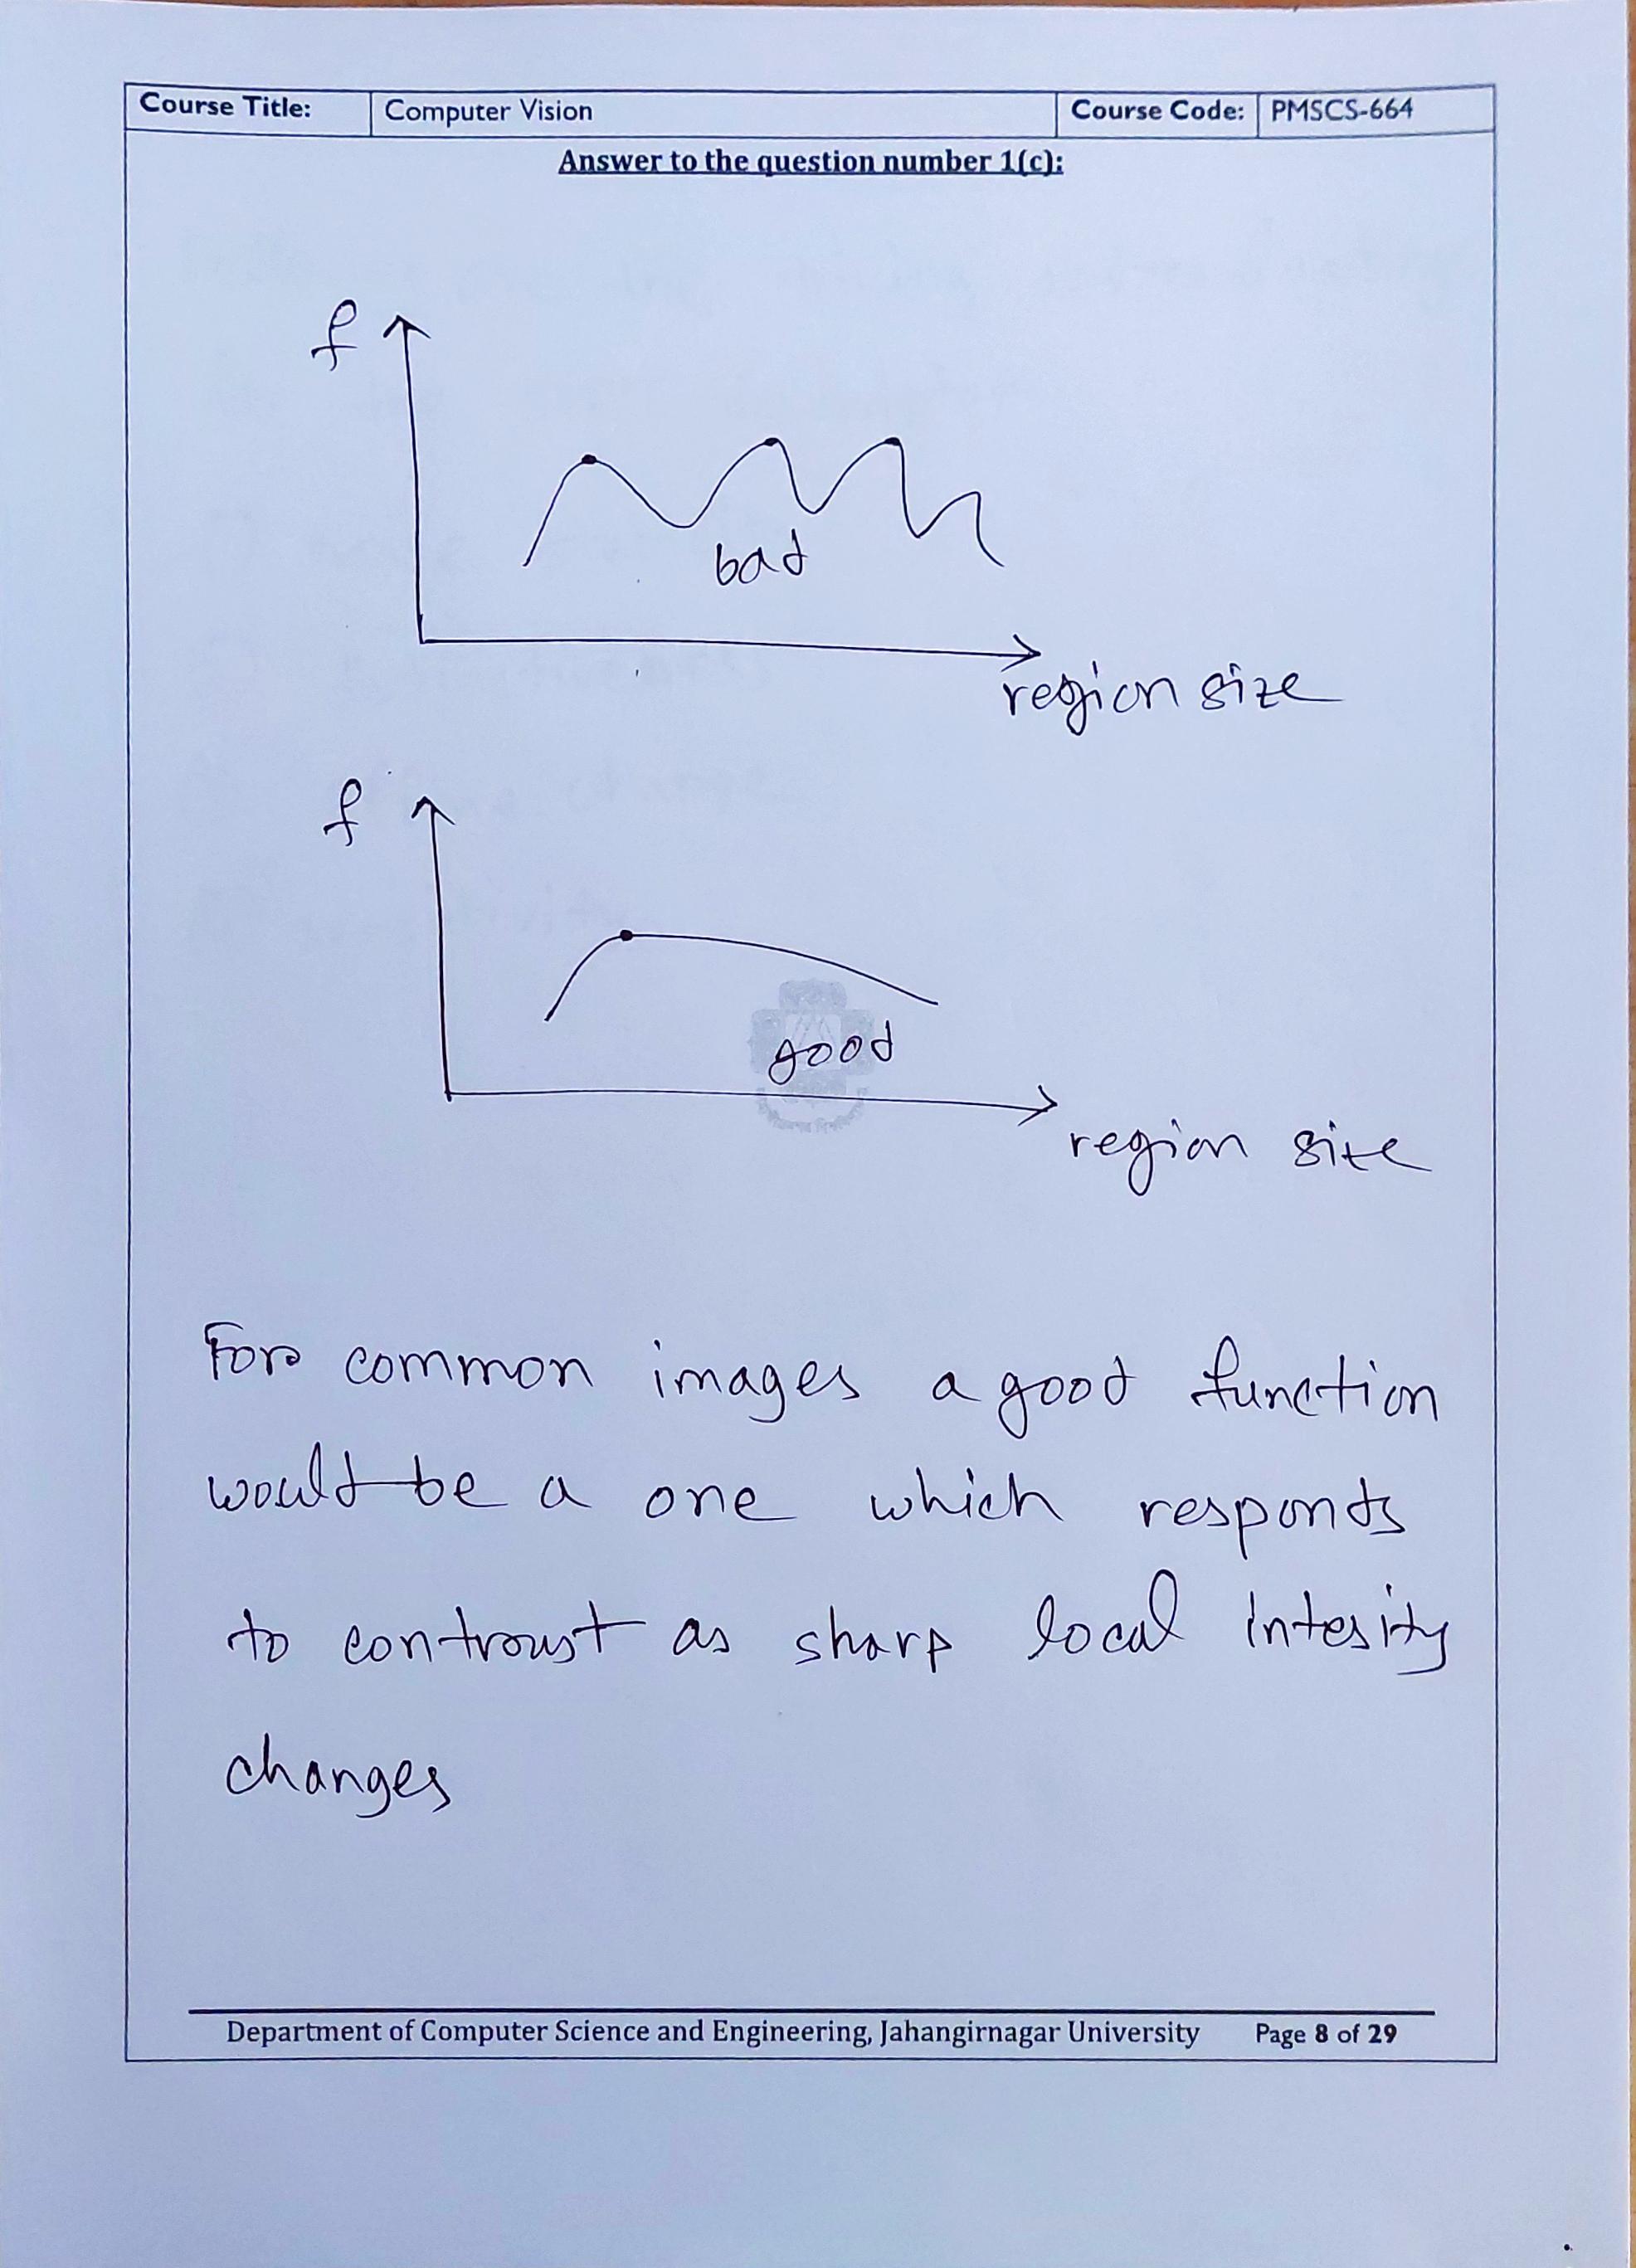 Course Title: Computer Vision Course Code: PMSCS-664
Answer to the question number 1(c):
f
bad
region size
f
good
region size
For common images a good function
would be a one which responds
to contrast as sharp local intesity
changes
Department of Computer Science and Engineering, Jahangirnagar University Page 8 of 29